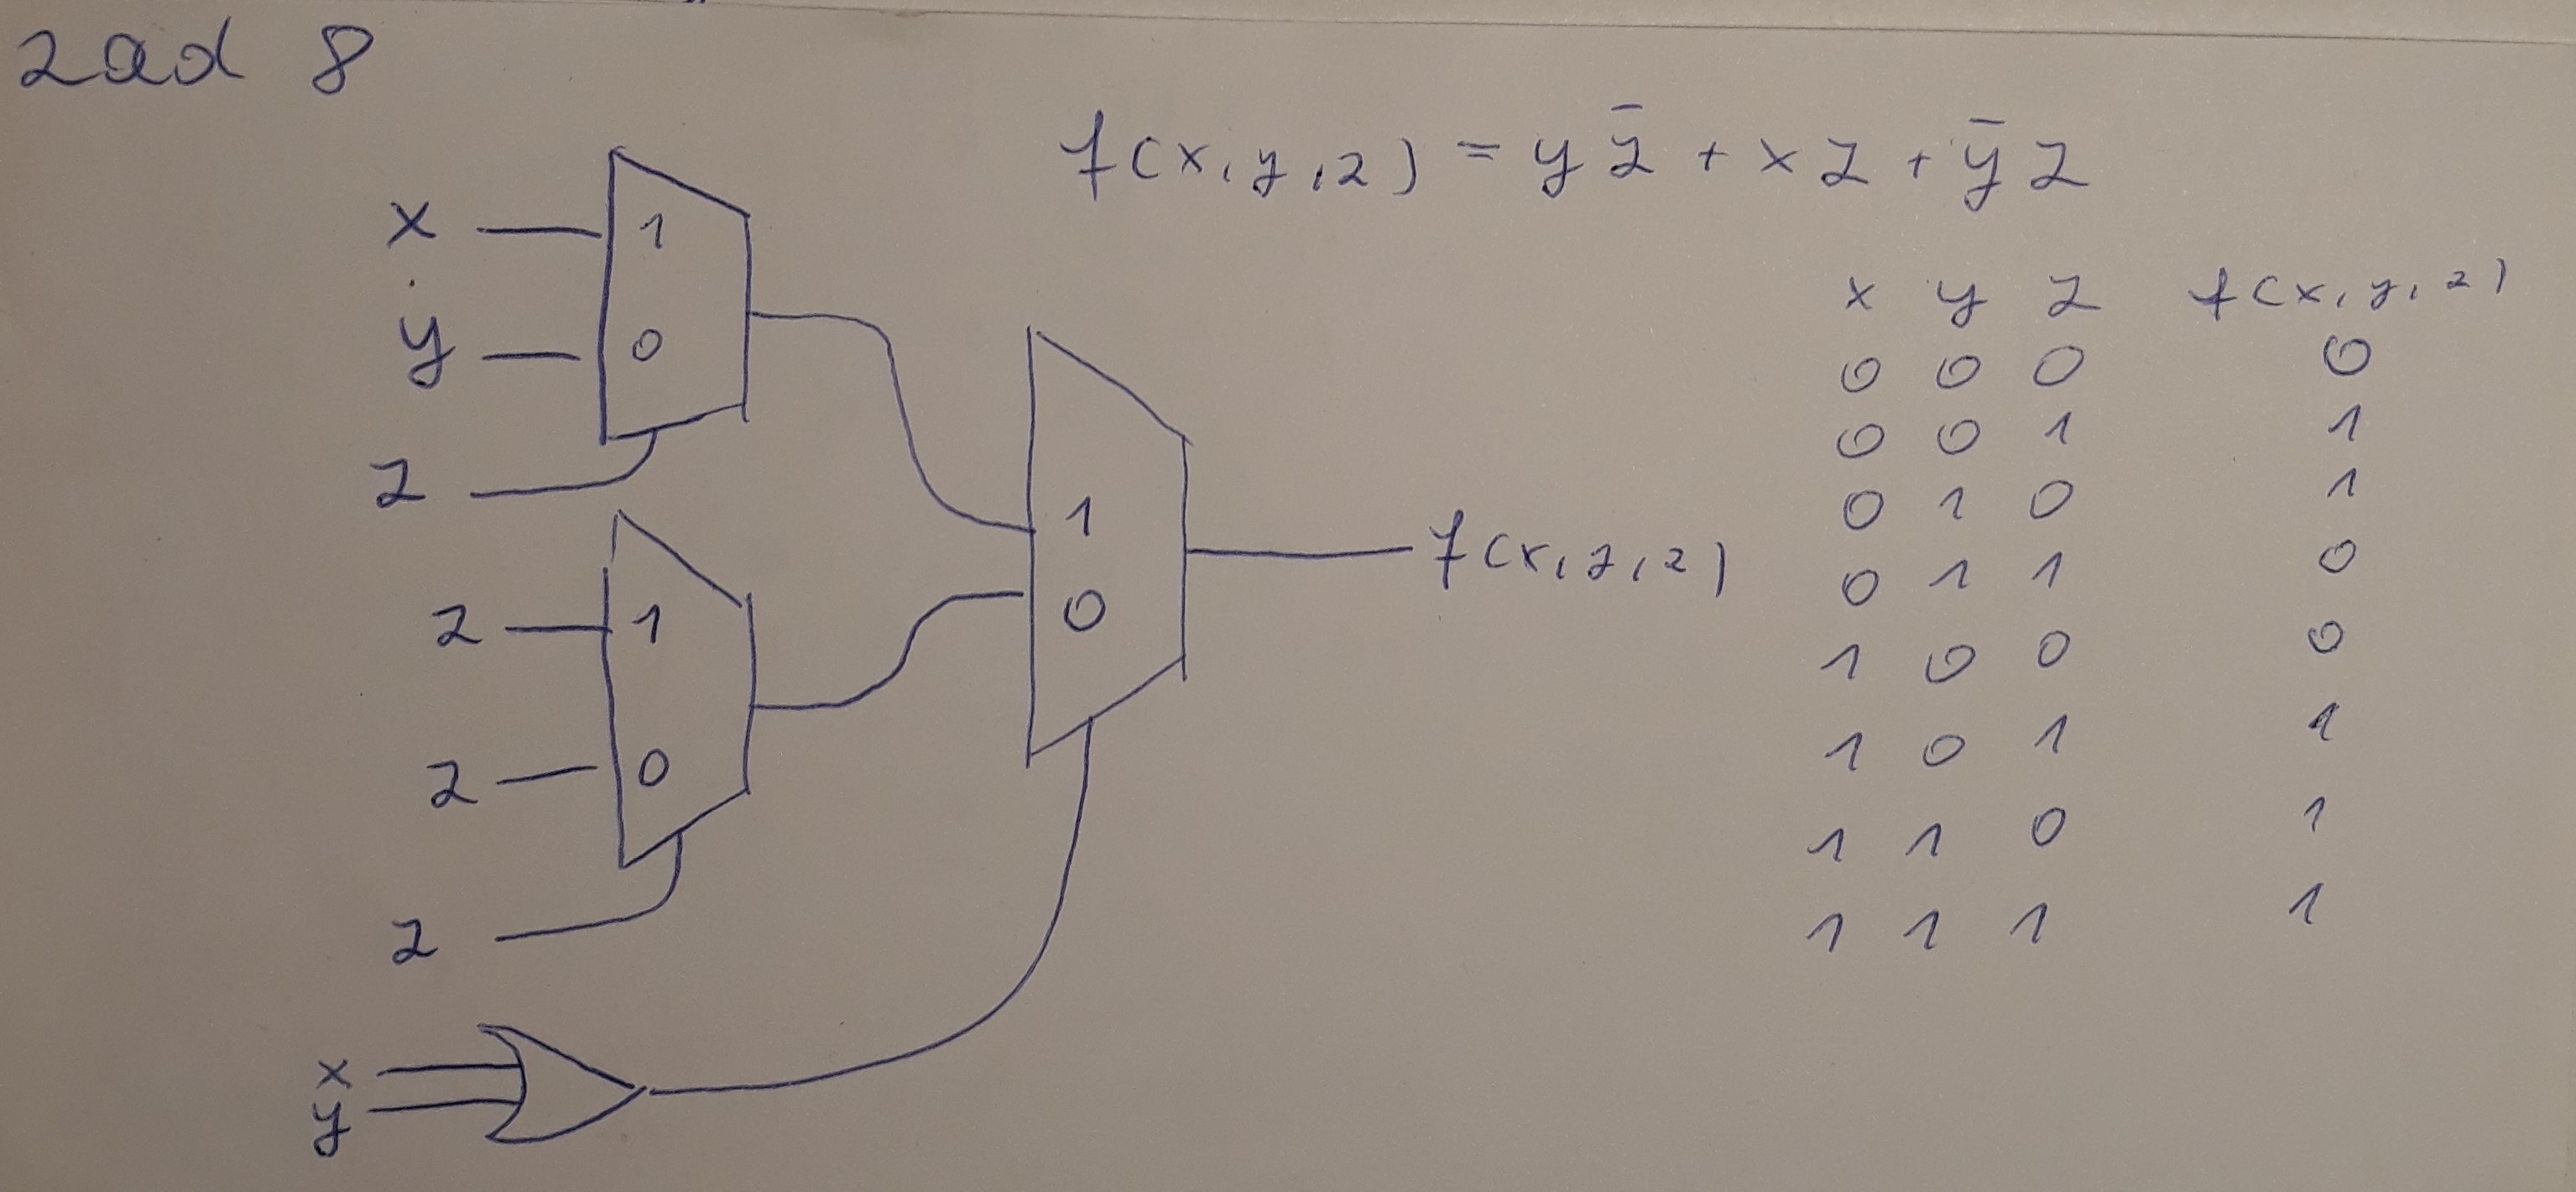 zad 8
f(x,y,z) = y z̄ + x z + ȳ z
x
1
y
0
z
z
1
z
0
z
1
0
f(x,y,z)
x
y
x y z f(x,y,z)
0 0 0 0
0 0 1 1
0 1 0 1
0 1 1 0
1 0 0 0
1 0 1 1
1 1 0 1
1 1 1 1